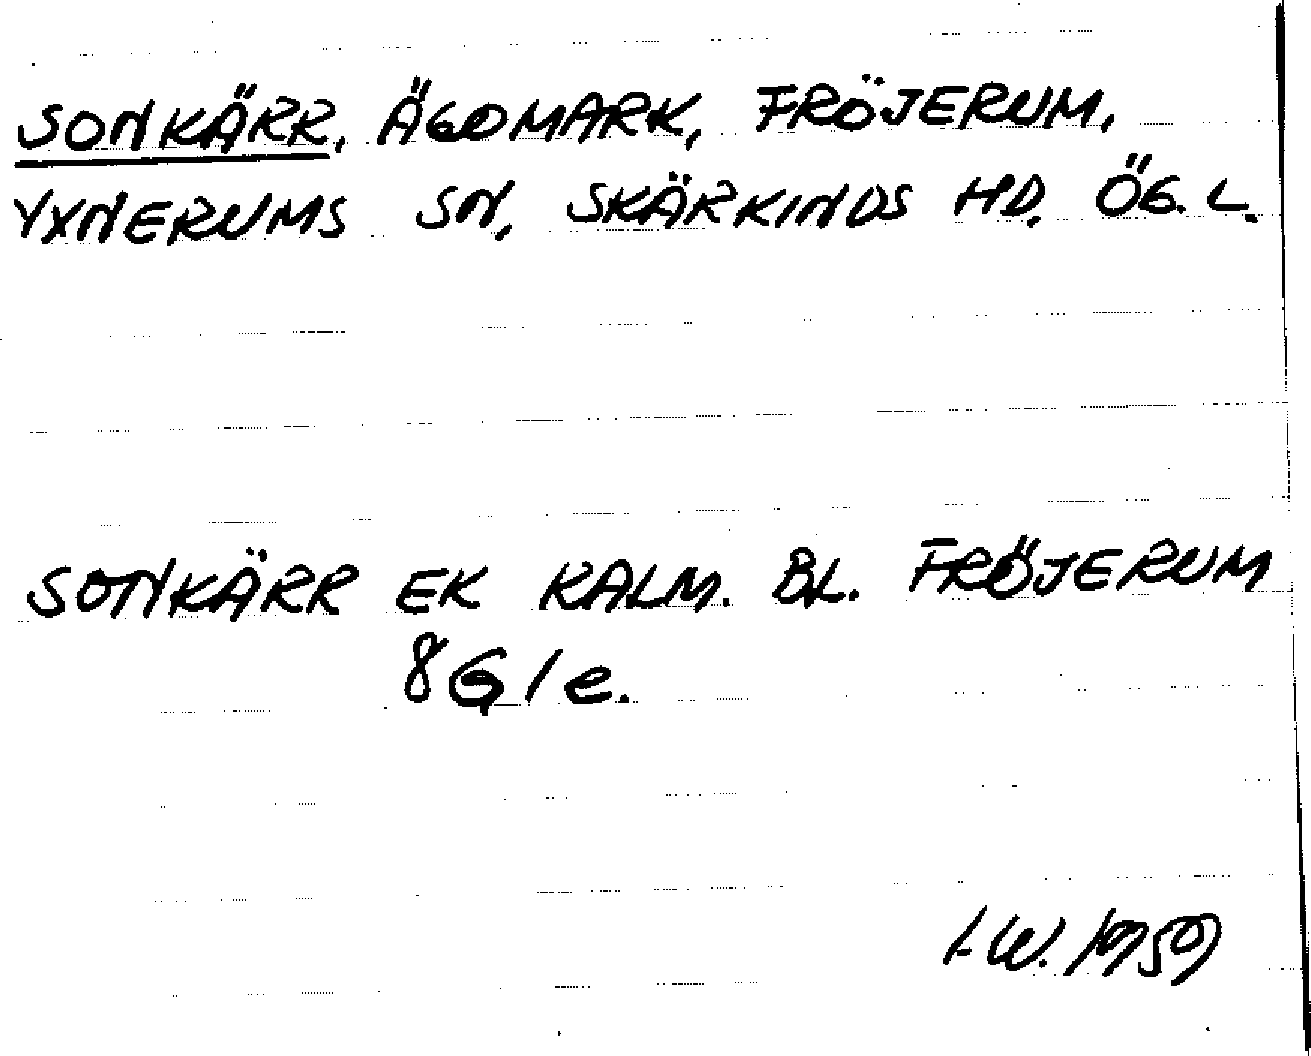 SONKÄRR, ÄGOMARK, FRÖJERUM,
YXNERUMS SN, SKÄRKINDS HD, ÖG. L.
SONKÄRR EK KALM. BL. FRÖJERUM
8G1e.
I.W. 1959